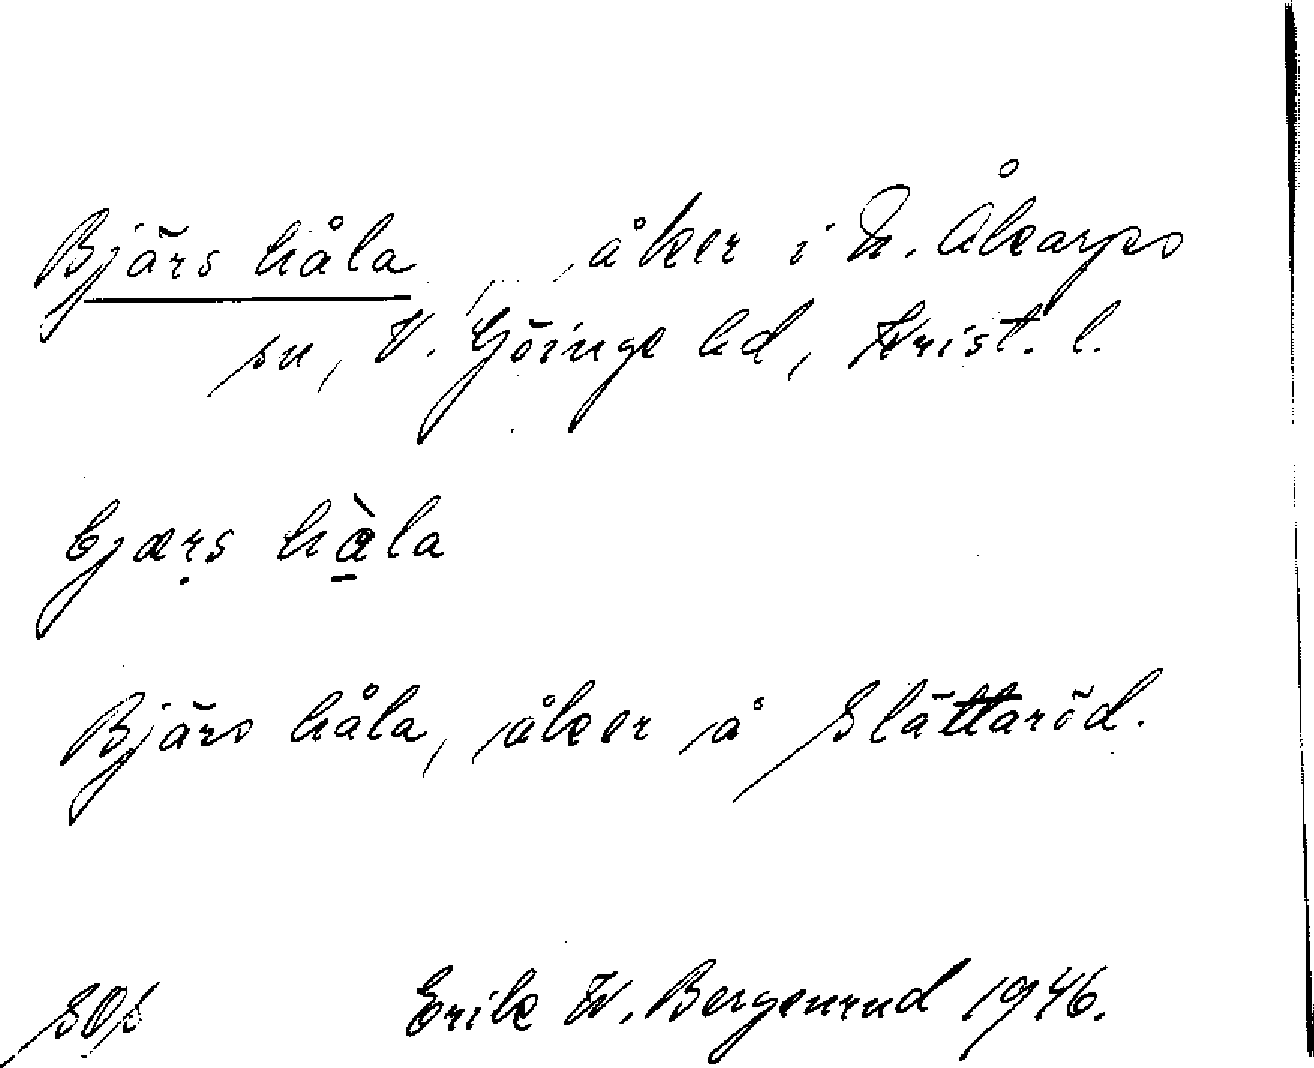 Bjärs håla, åker i N. Åkarps
sn, V. Göinge hd, Krist. l.
bjærs hàla
Bjärs håla, åker å Slättaröd.
SOS Erik W. Bergenrud 1946.